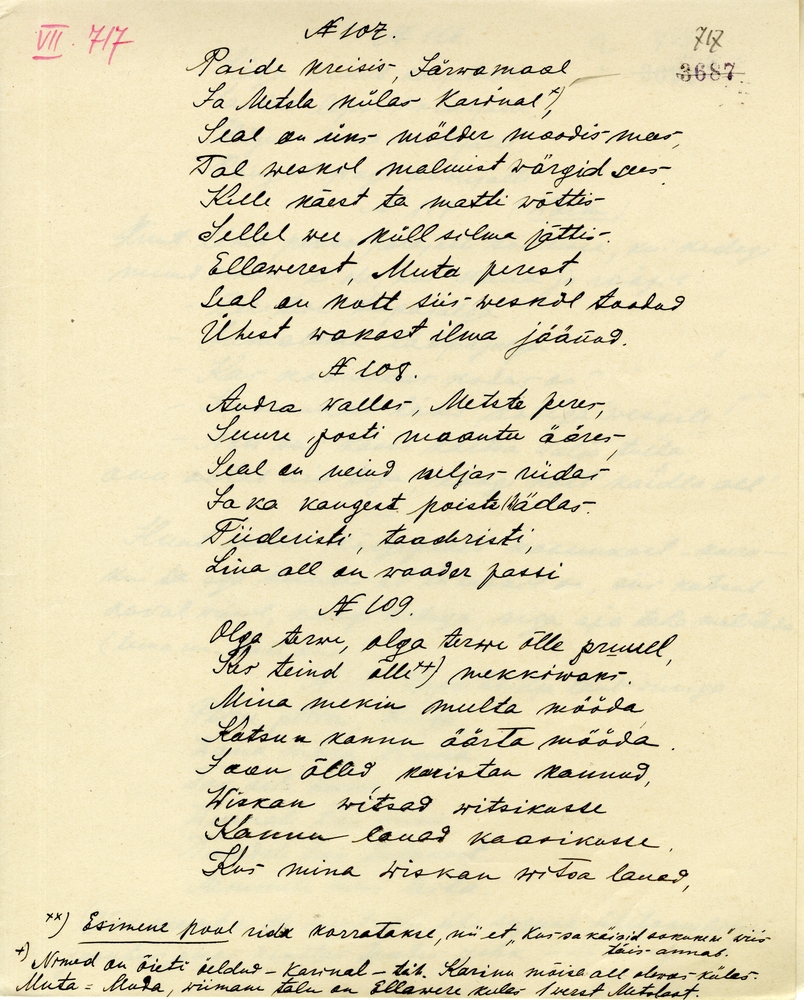 VII. 717
717
3687
№ 107.
Paide kreisis, Järwamaal
Ja Metsla külas Karinal +),
Seal on üks mölder moodis mees,
Tal weskil malmist wärgid sees.
Kelle käest ta matti wõttis
Sellel wee küll silma jättis.
Ellawerest, Muta perest,
Seal on kott siis weskil toodud
Ühest wakast ilma jäänud.
№ 108.
Audra wallas, Metste peres,
Suure posti maantu ääres,
Seal on neiud neljas riidas
Ja ka kangest poiste hädas.
Tiideristi, taaderisti,
Liua all on waader passi
№ 109.
Olga terwe, olga terwe õlle pruuel,
Kas teind õlli ++) mekkiwaks.
Mina mekin multa mööda
Katsun kannu äärta mööda.
Jaan õlled, karistan kannud,
Wiskan witsad witsikusse
Kannu lauad kaasikusse.
Kus mina wiskan witsa lauad,
++) Esimene pool rida korratakse, nii et, "Kus sa käisid sokukene" wiis
täis annab.
+) Nimed on õieti öeldud - Karinal - tät. Karinu mõisa all olewas külas.
Muta = Muda, wiimane talu on Ellawere külas 1 verst Metslast.